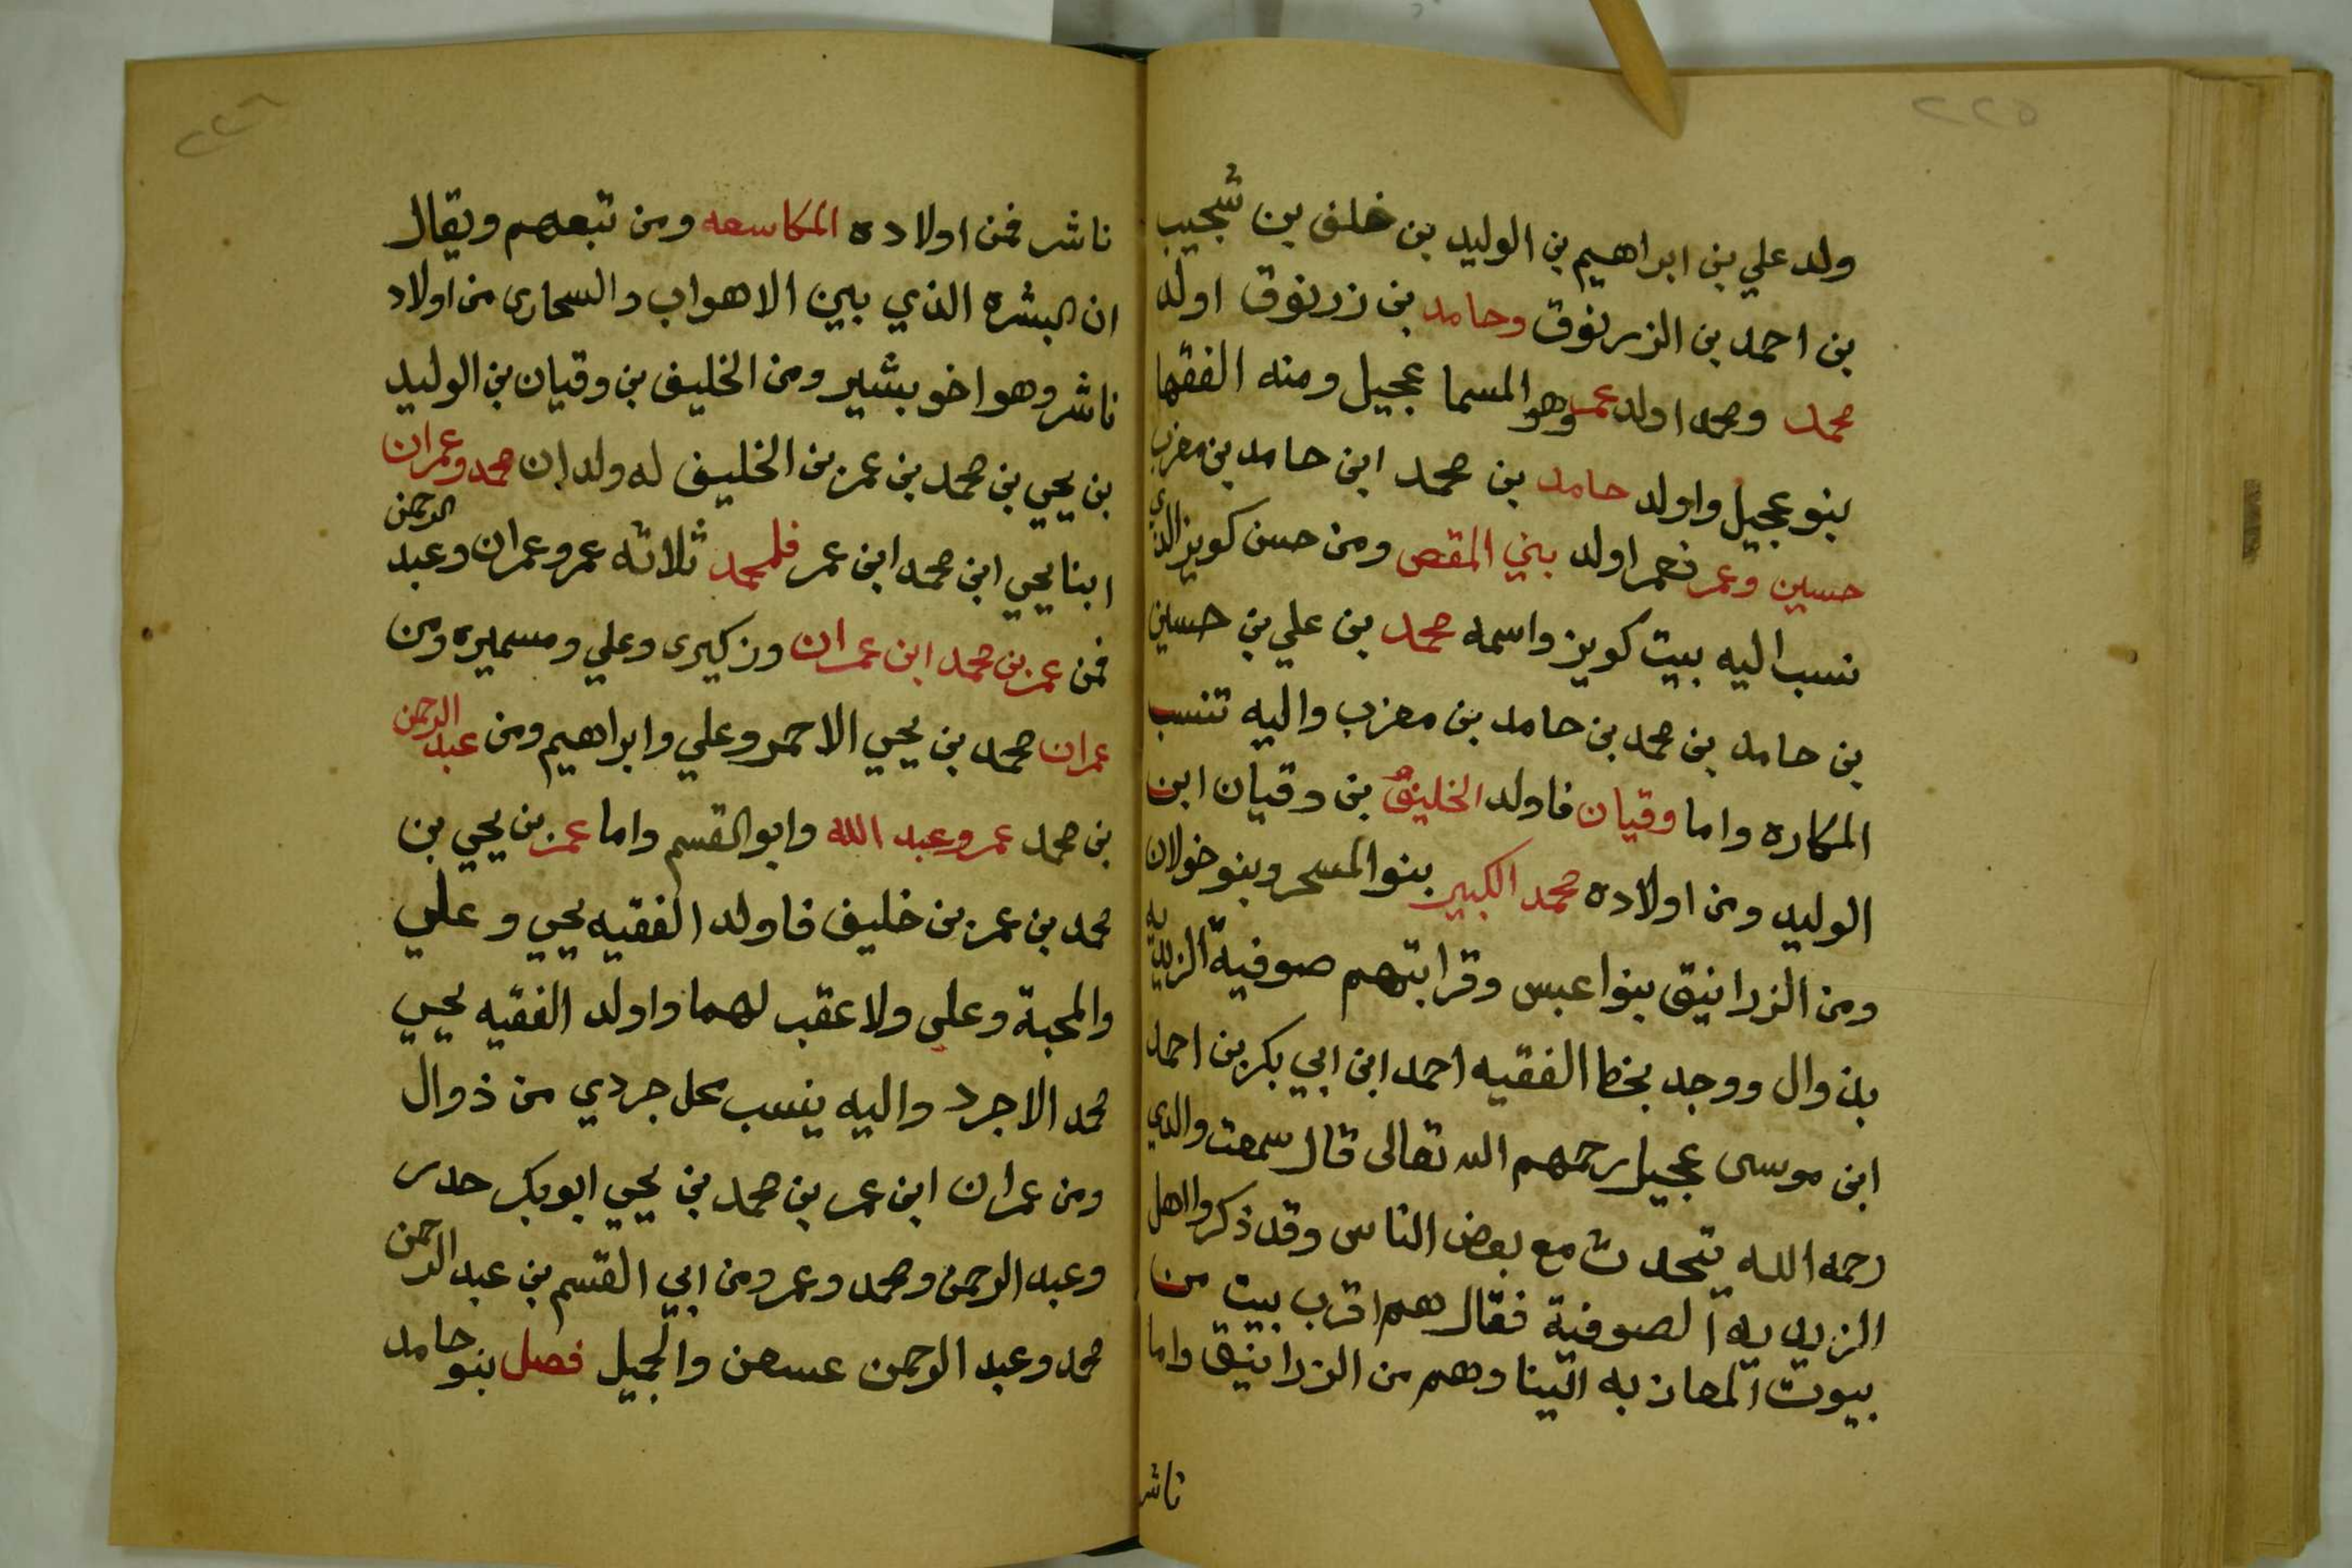 ٢٢٥
ولد علي بن ابراهيم بن الوليد بن خلف بن شجيب
بن احمد بن الزرنوق وحامد بن زرنوق اولد
محمد ومحمد اولد عمر وهو المسما عجيل ومنه الفقها
بنو عجيل واولد حامد بن محمد ابن حامد بن معزب
حسين وعمر فعمر اولد بني المقص ومن حسن كويز الذي
نسب اليه بيت كويز واسمه محمد بن علي بن حسين
بن حامد بن محمد بن حامد بن معزب واليه تنسب
المكاره واما وقيان فاولد الخليف بن وقيان ابن
الوليد ومن اولاده محمد الكبير بنو المسحر وبنو خولان
ومن الزرانيق بنوا عبس وقرابتهم صوفية الزيديه
بذوال ووجد بخط الفقيه احمد ابن ابي بكر بن احمد
ابن موسى عجيل رحمهم الله تعالى قال سمعت والدي
رحمه الله يتحدث مع بعض الناس وقد ذكروا اهل
الزيديه الصوفية فقال هم اقرب بيت من
بيوت المعازبه الينا وهم من الزرانيق واما
ناشر
٢٢٦
ناشر فمن اولاده المكاسعه ومن تبعهم ويقال
ان البشره الذي بين الاهواب والسحارى من اولاد
ناشر وهو اخو بشير ومن الخليف بن وقيان بن الوليد
بن يحيي بن محمد بن عمر بن الخليف له ولدان محمد وعمران
ابنا يحيي ابن محمد ابن عمر فلمحمد ثلاثه عمر وعمران وعبد الرحمن
فمن عمر بن محمد ابن عمران وزكيرى وعلي ومسميره ومن
عمران محمد بن يحيي الاحمر وعلي وابراهيم ومن عبد الرحمن
بن محمد عمر وعبد الله وابو القسم واما عمر بن يحيي بن
محمد بن عمر بن خليف فاولد الفقيه يحيي وعلي
والمحبة وعلي ولا عقب لهما واولد الفقيه يحيي
محمد الاجرد واليه ينسب محل جردي من ذوال
ومن عمران ابن عمر بن محمد بن يحيي ابو بكر
وعبد الرحمن ومحمد وعمر ومن ابي القسم بن عبد الرحمن
محمد وعبد الرحمن عسهن والجميل فصل بنو حامد